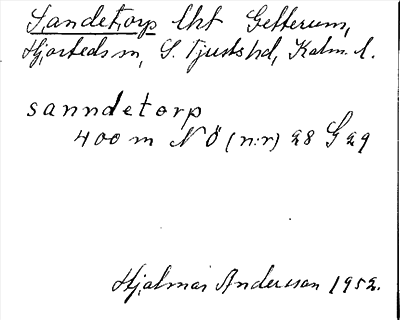 Sandetorp lht Getterum,
Hjorteds sn, S. Tjusts hd, Kalm. l.
sanndetorp
400 m NÖ (n:r) 28 G 29
Hjalmar Andersson 1952.